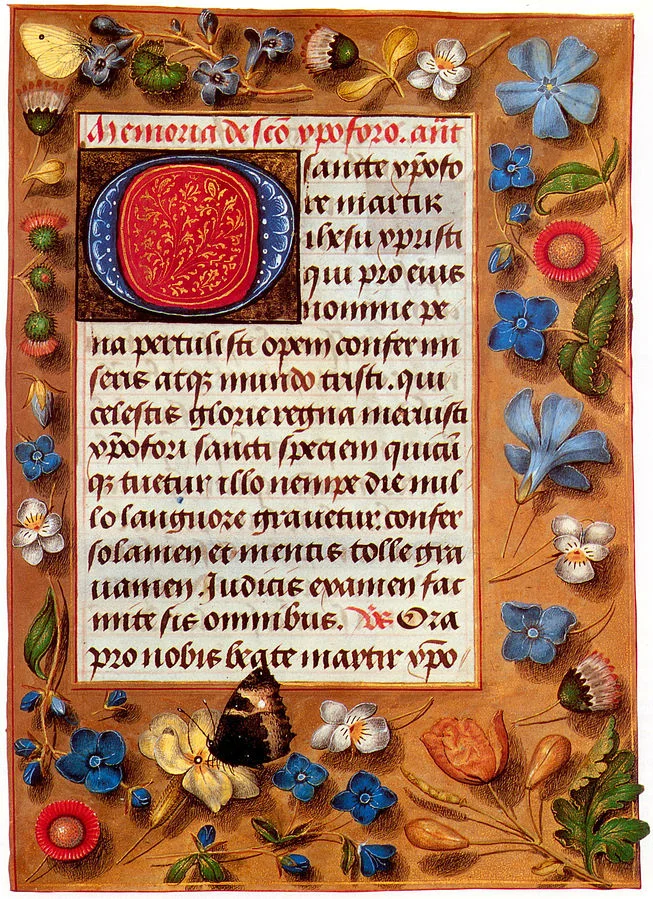 Memoria de sc̄o xp̄oforo. an̄t
O sancte xp̄ofo
re martir
ihesu xpristi
qui pro eius
nomine pe
na pertulisti opem confer mi
seris atqꝫ mundo tristi. qui
celestis glorie regna meruisti
xp̄ofori sancti speciem quicū
qꝫ tuetur illo nempe die nul
lo languore grauetur. confer
solamen et mentis tolle gra
uamen. Iudicis examen fac
mite sis omnibus. V̄s Ora
pro nobis beate martir xp̄o